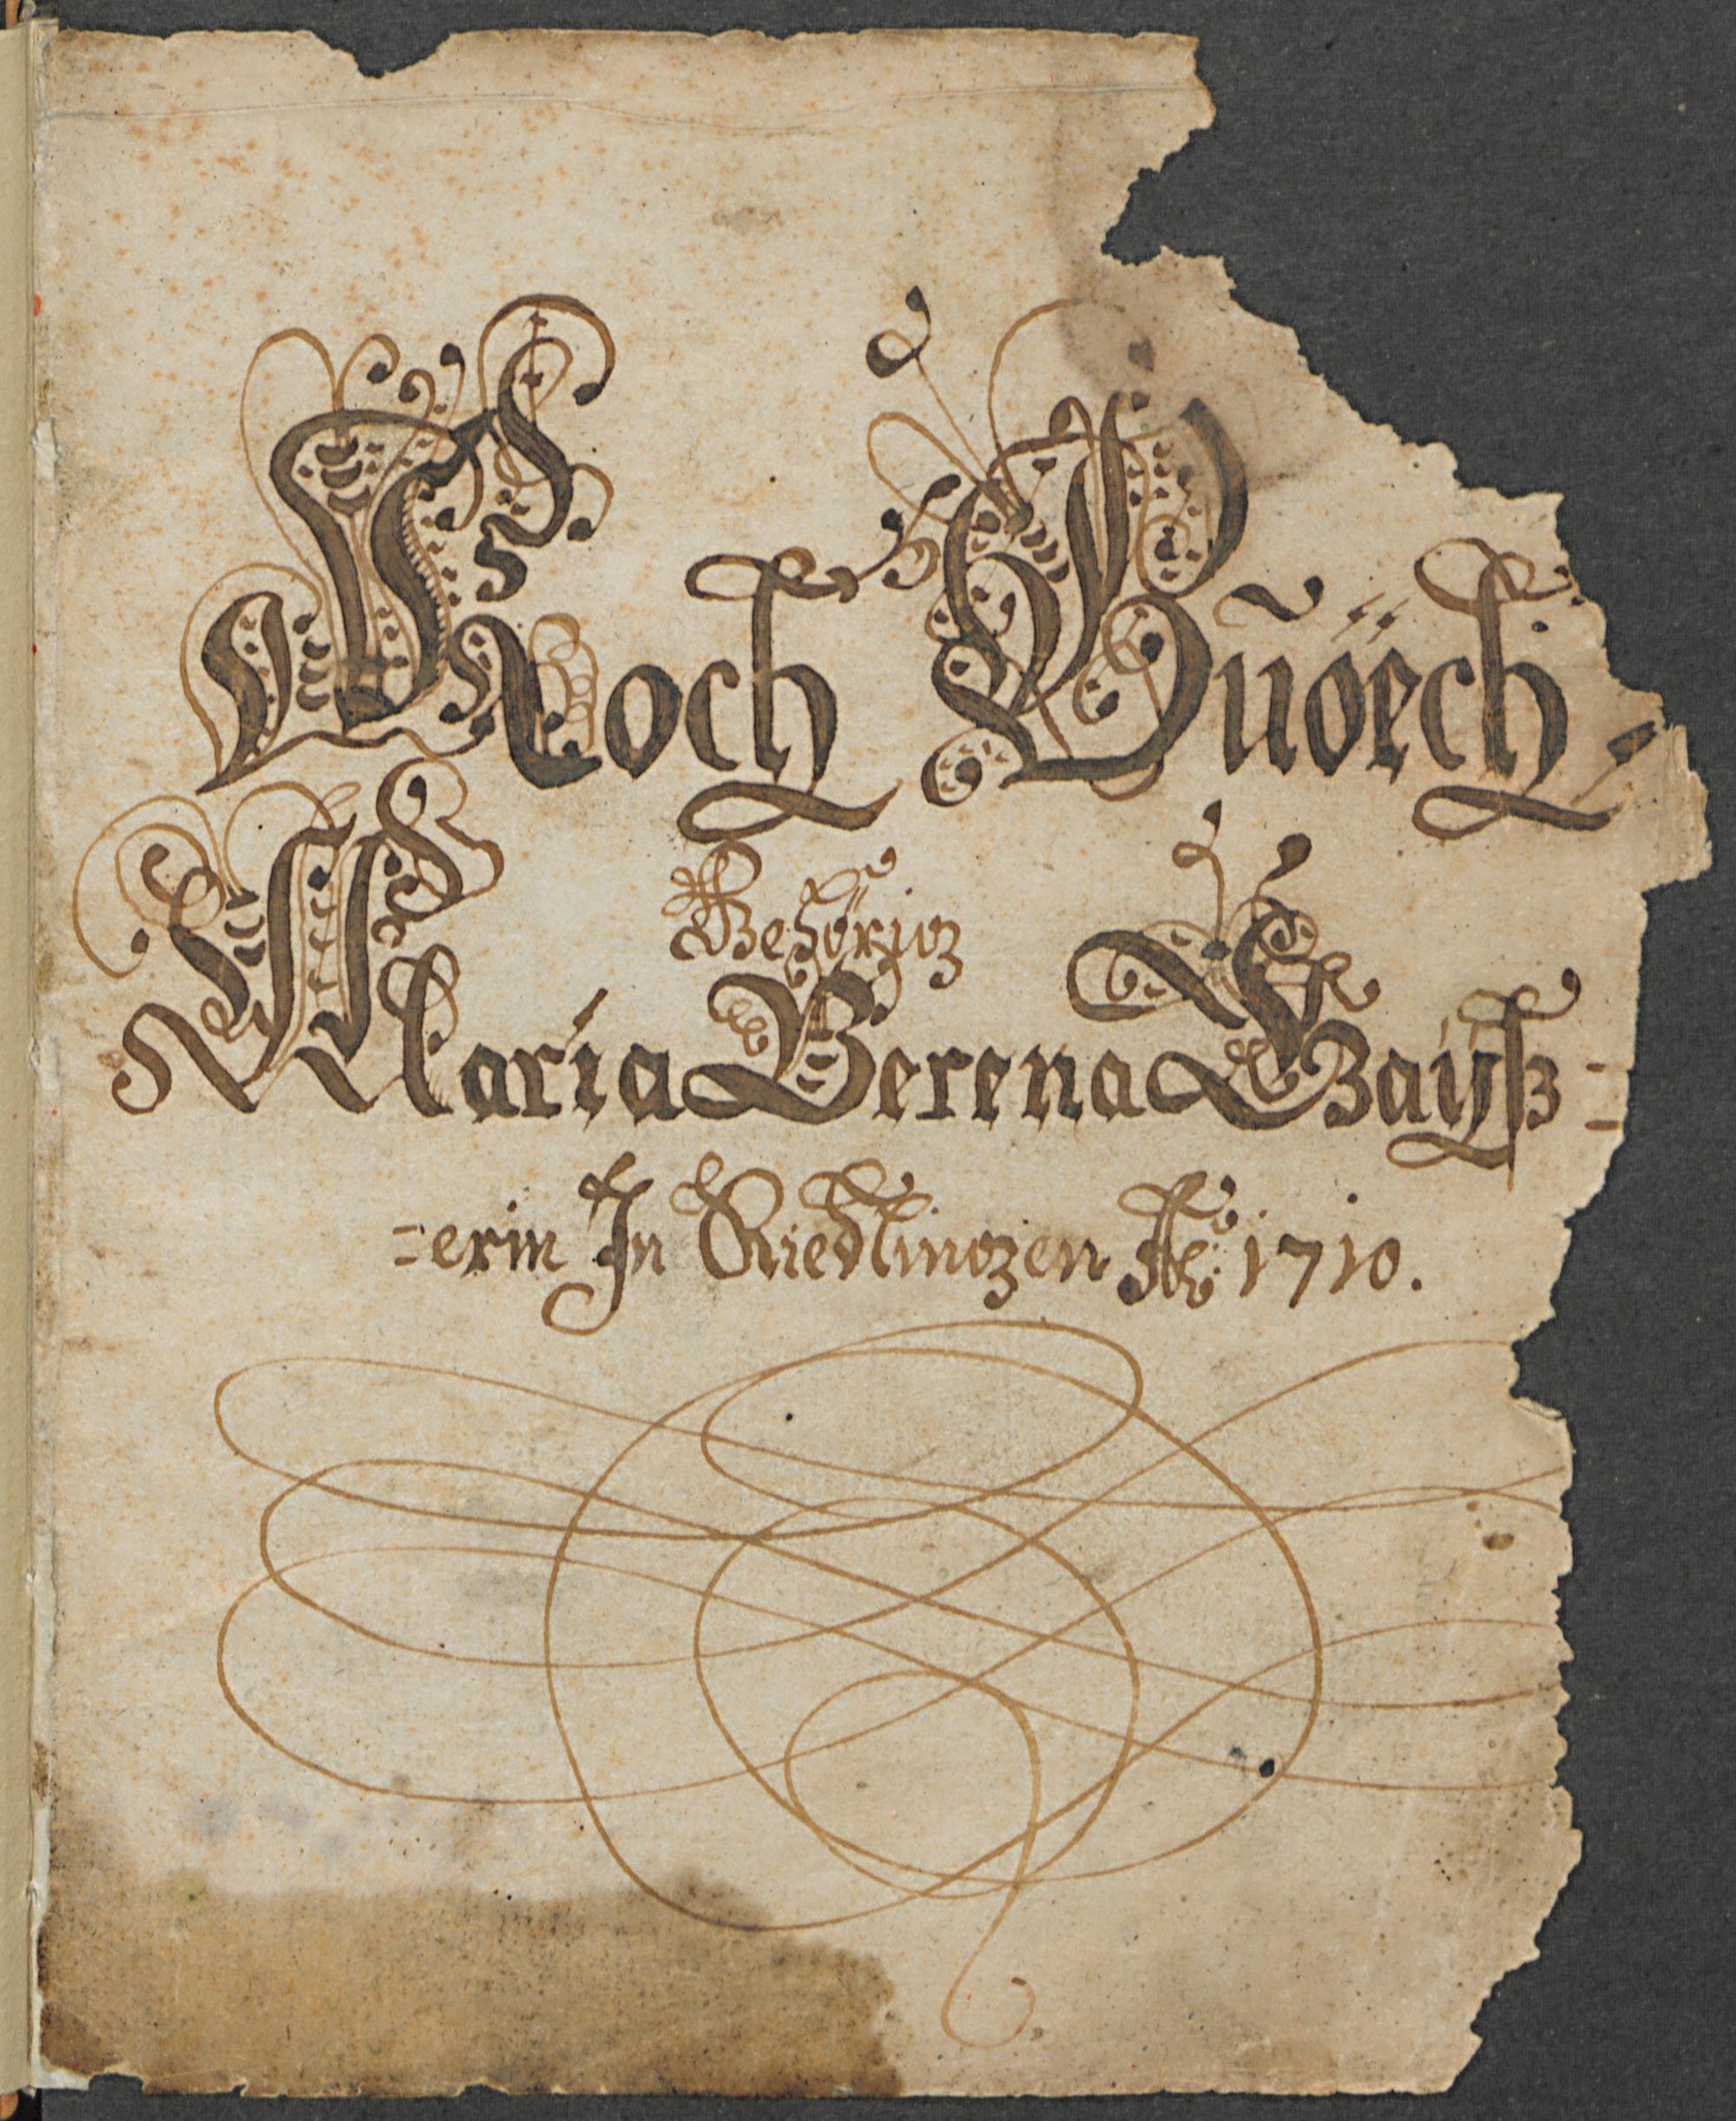 Koch Bŭöech
Gehörig
Maria Verena Gayß=
=erin In Riedlingen Aō: 1710.